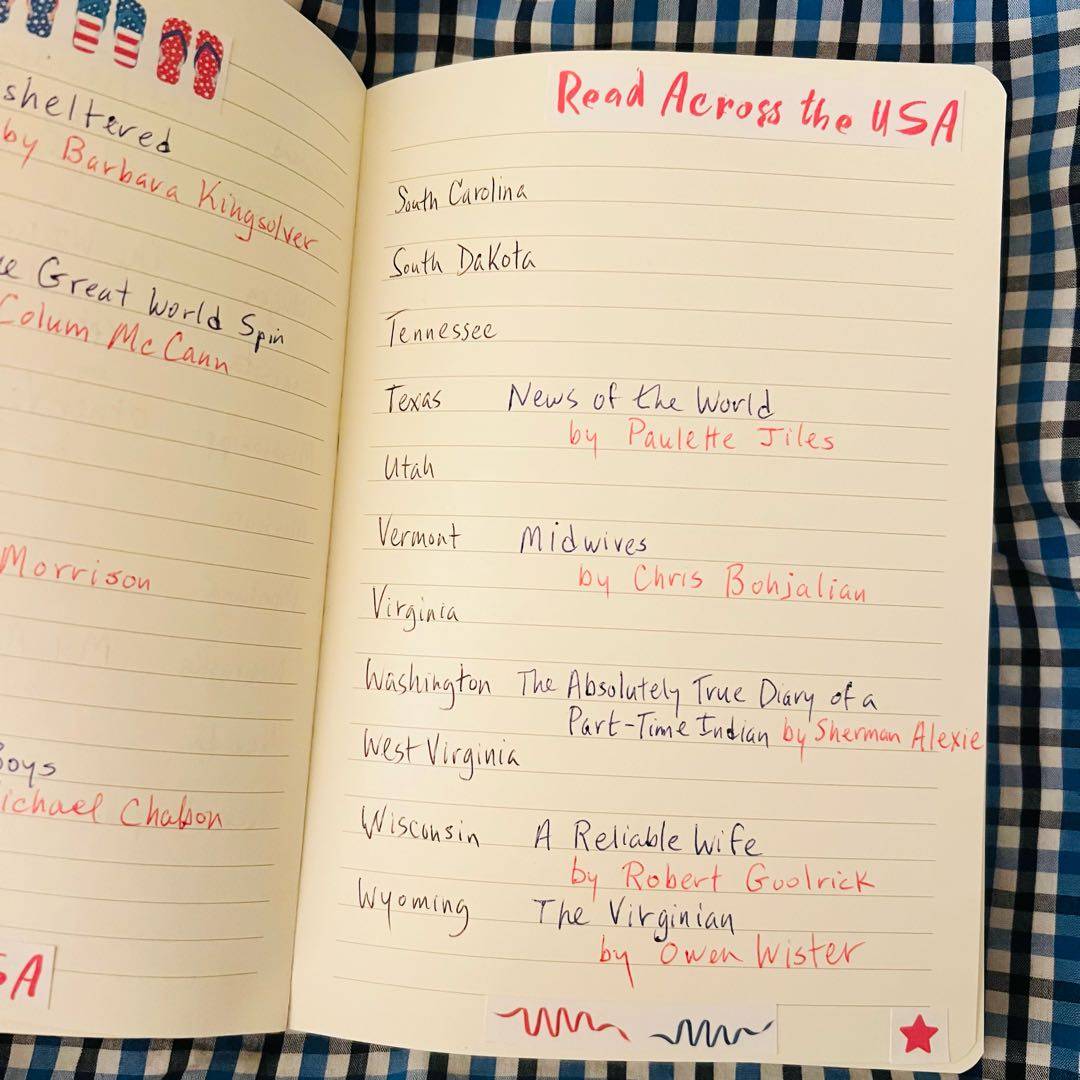 sheltered
by Barbara Kingsolver
Great World Spin
Colum McCann
Morrison
Boys
Michael Chabon
SA
Read Across the USA
South Carolina
South Dakota
Tennessee
Texas News of the World
by Paulette Jiles
Utah
Vermont Midwives
by Chris Bohjalian
Virginia
Washington The Absolutely True Diary of a
Part-Time Indian by Sherman Alexie
West Virginia
Wisconsin A Reliable Wife
by Robert Goolrick
Wyoming The Virginian
by Owen Wister